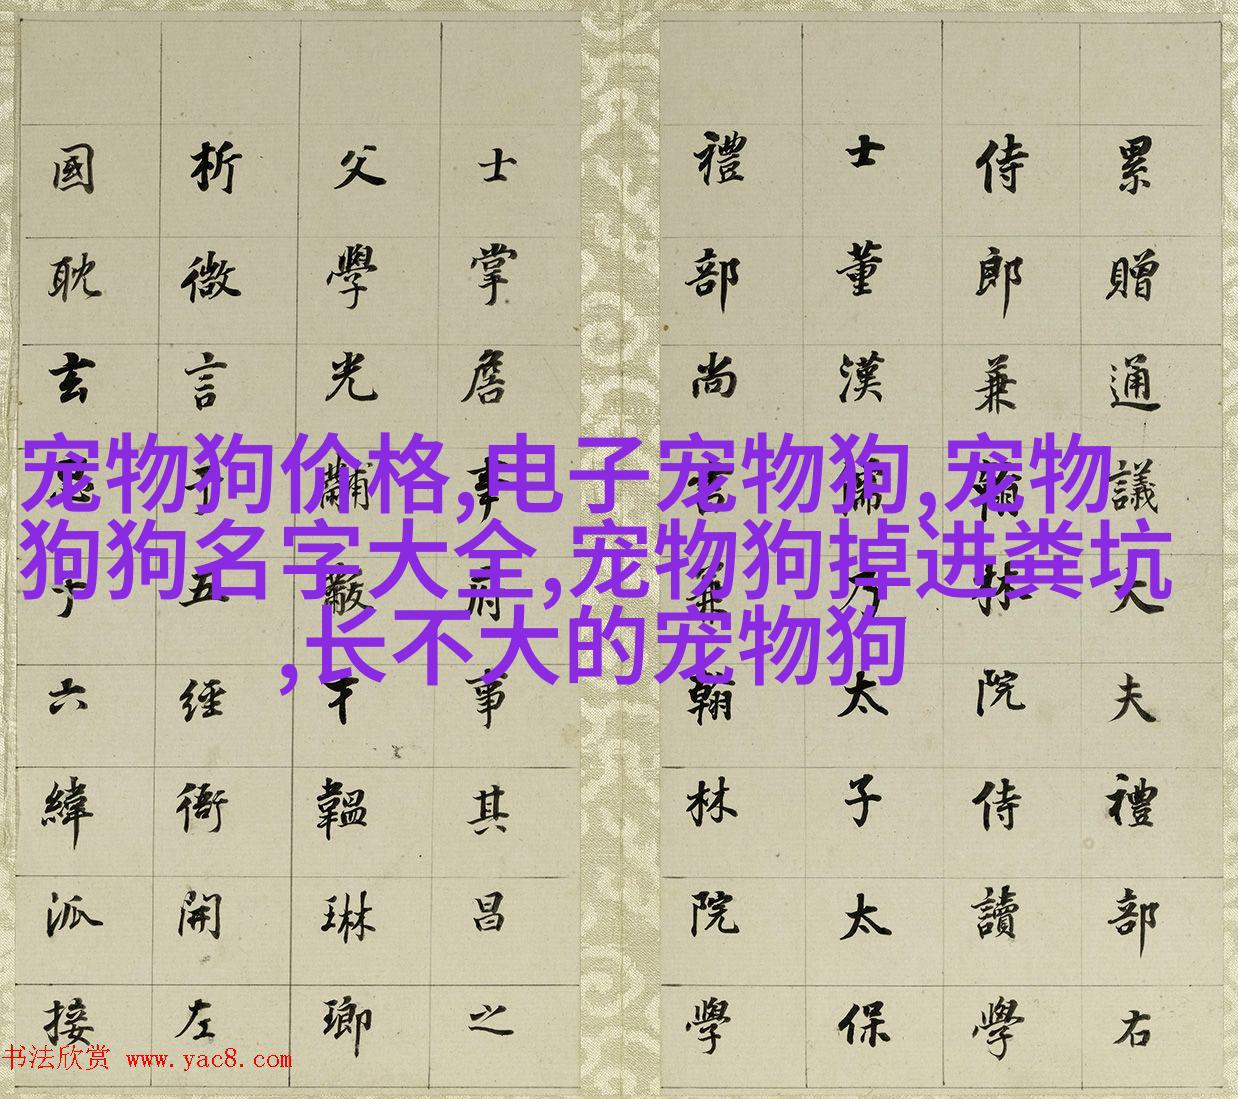 累贈通議大夫禮部右
侍郎兼翰林院侍讀學
士董漢儒乃太子太保
禮部尚書兼翰林院學
士掌詹事府事其昌之
父學光黼黻干韞琳瑯
析微言于五經衙開左
國耽玄思于六緯派接
宠物狗价格,电子宠物狗,宠物
狗狗名字大全,宠物狗掉进粪坑
,长不大的宠物狗
书法欣赏 www.yac8.com